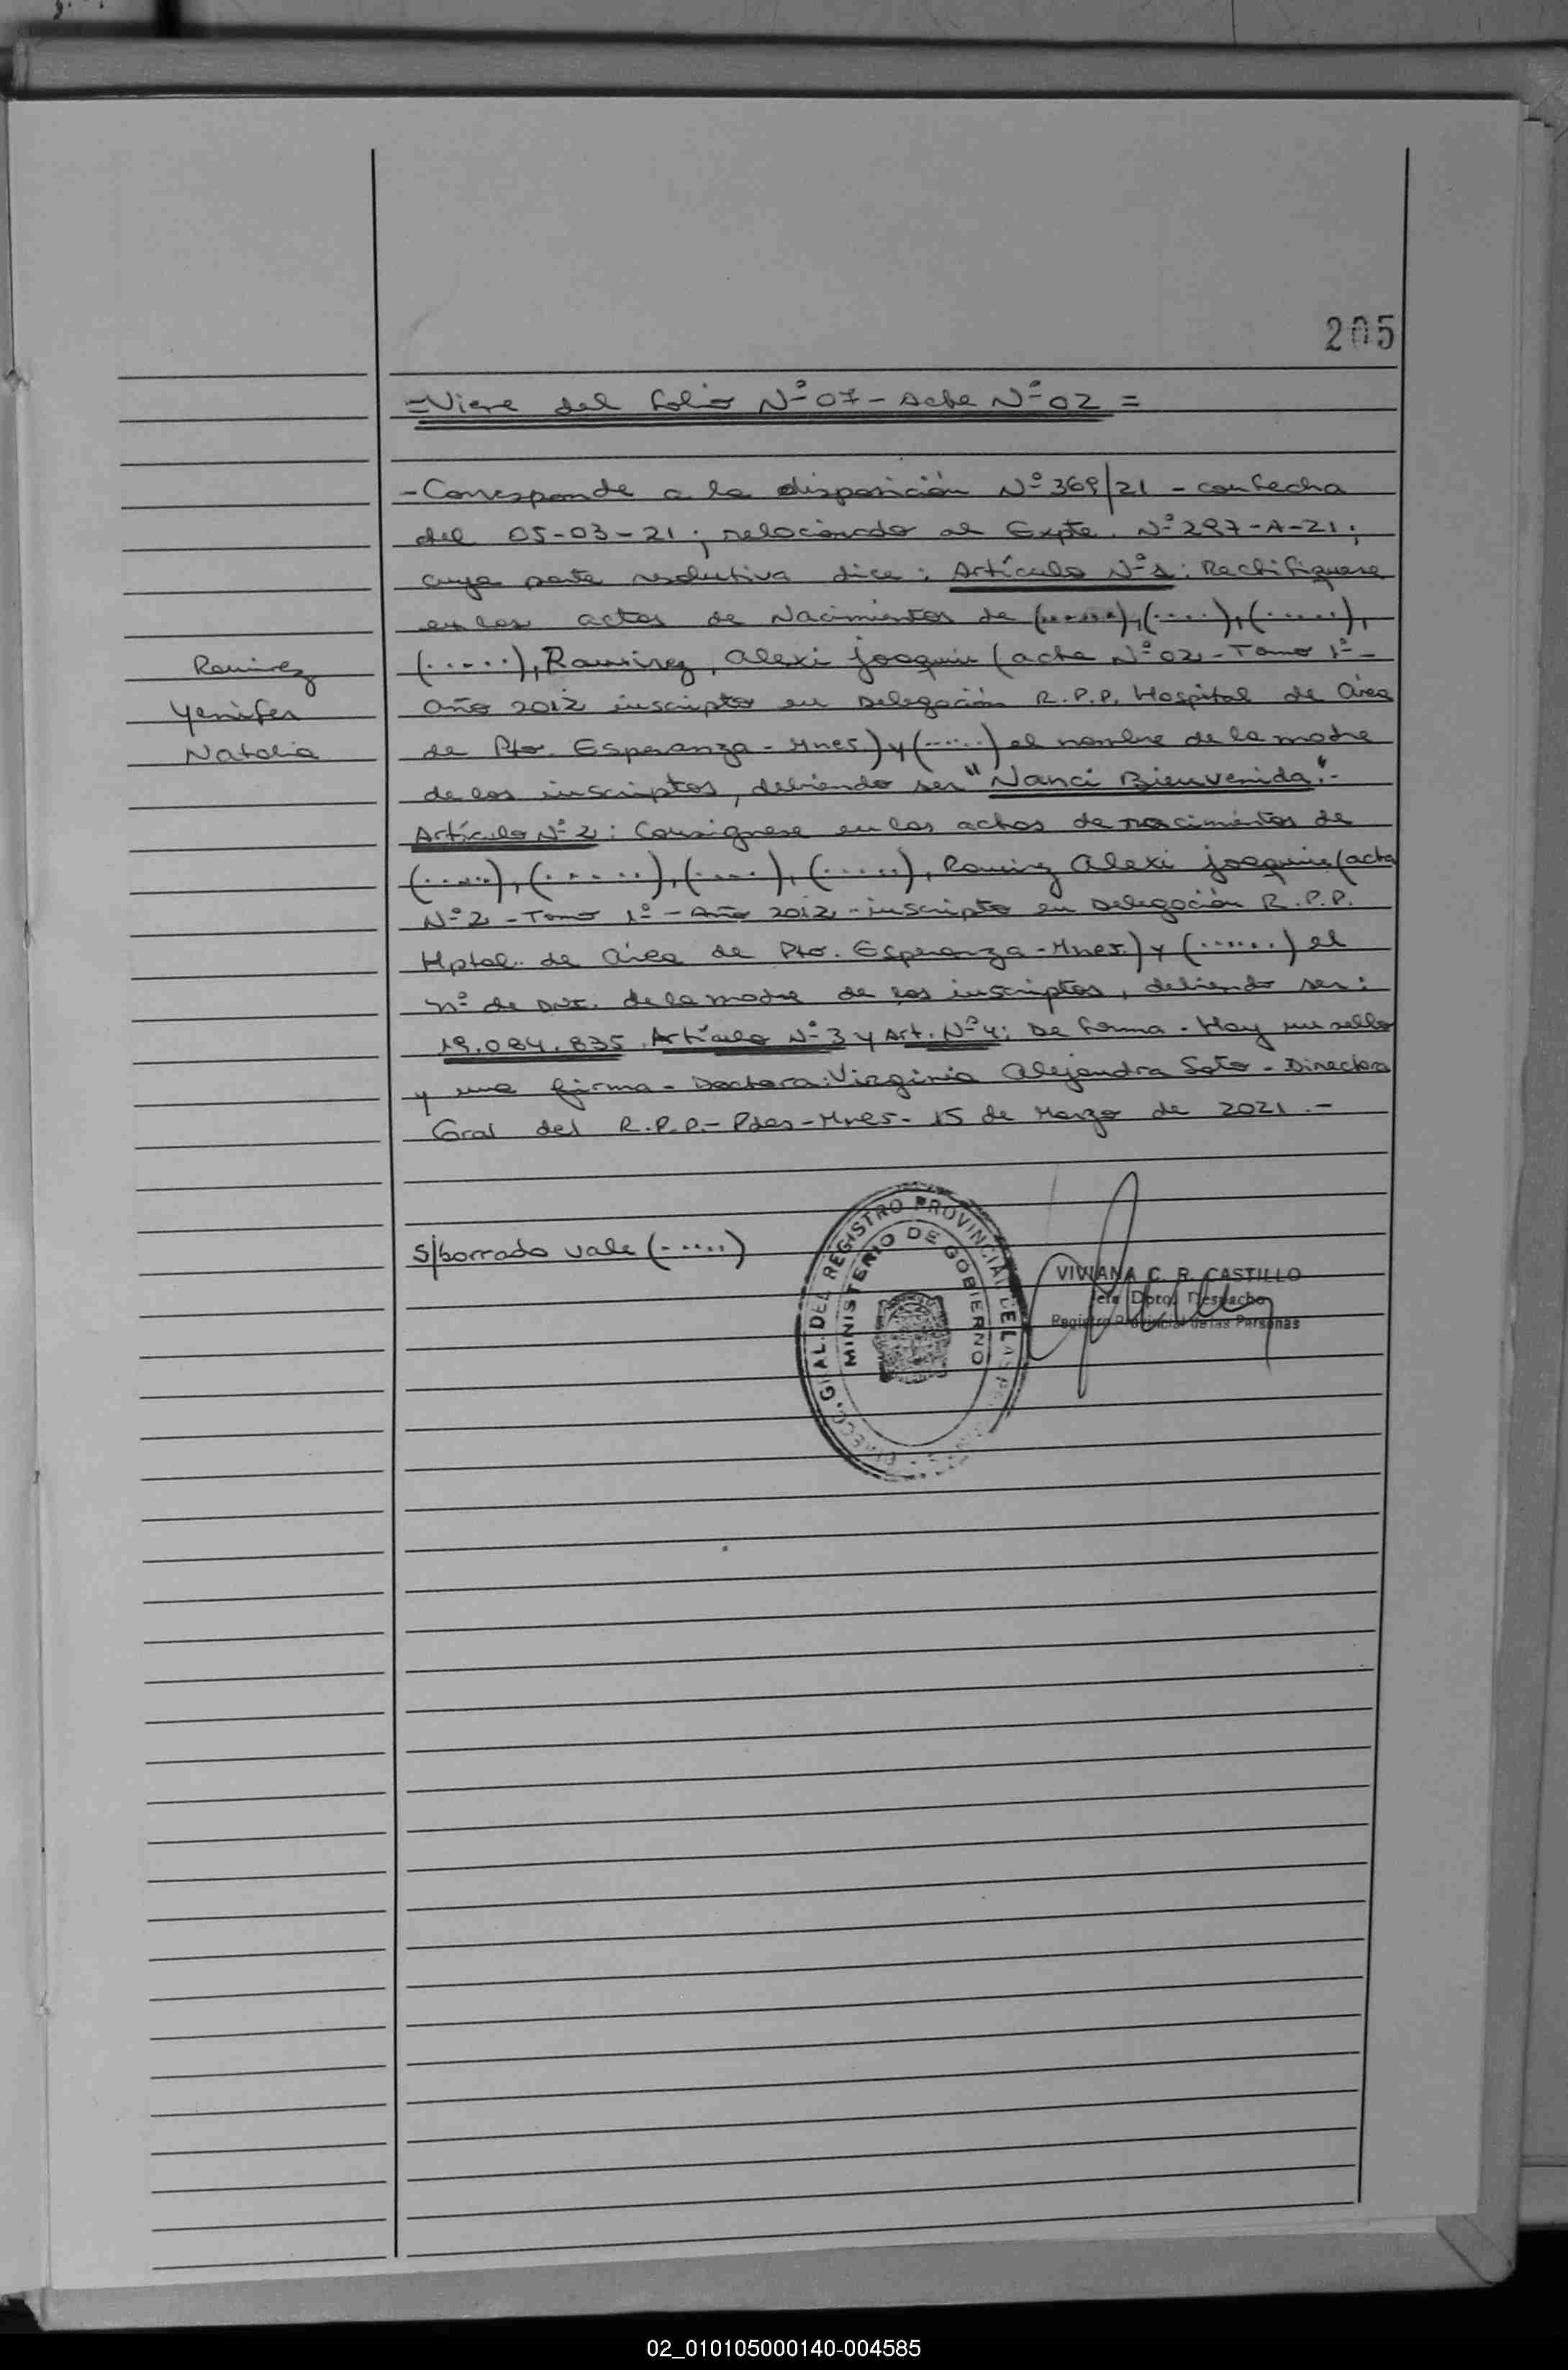 205
=Viene del folio Nº 07 - Acta Nº 02 =
-Corresponde a la disposición Nº 369/21 - con fecha
del 05-03-21; relacionado al Expte. Nº 297-A-21;
cuya parte resolutiva dice: Artículo Nº 1: Rectifíquese
en las actas de Nacimientos de (......), (.....), (......),
(......), Ramirez, Alexi Joaquin (acta Nº 02 - Tomo 1º -
Año 2012 inscripto en Delegación R.P.P. Hospital de Area
de Pto. Esperanza - Mnes.) y (......) el nombre de la madre
de los inscriptos, debiendo ser "Nanci Bienvenida".-
Artículo Nº 2: Consígnese en las actas de nacimientos de
(......), (......), (.....), (......), Ramirez Alexi Joaquin (acta
Nº 2 - Tomo 1º - Año 2012 - inscripto en Delegación R.P.P.
Hptal. de Area de Pto. Esperanza - Mnes.) y (......) el
nº de de la madre de los inscriptos, debiendo ser:
19.084.835. Artículo Nº 3 y Art. Nº 4: De forma. Hay un sello
y una firma - Doctora: Virginia Alejandra Soto - Directora
Gral del R.P.P.- Pdas - Mnes - 15 de Marzo de 2021.-
Ramirez
Yenifer
Natalia
s/borrado vale (......)
DIRECC. GRAL. DEL REGISTRO PROVINCIAL DE LAS PERSONAS
MINISTERIO DE GOBIERNO
VIVIANA C. R. CASTILLO
Jefa Dpto. Despacho
Registro Provincial de las Personas
02_010105000140-004585